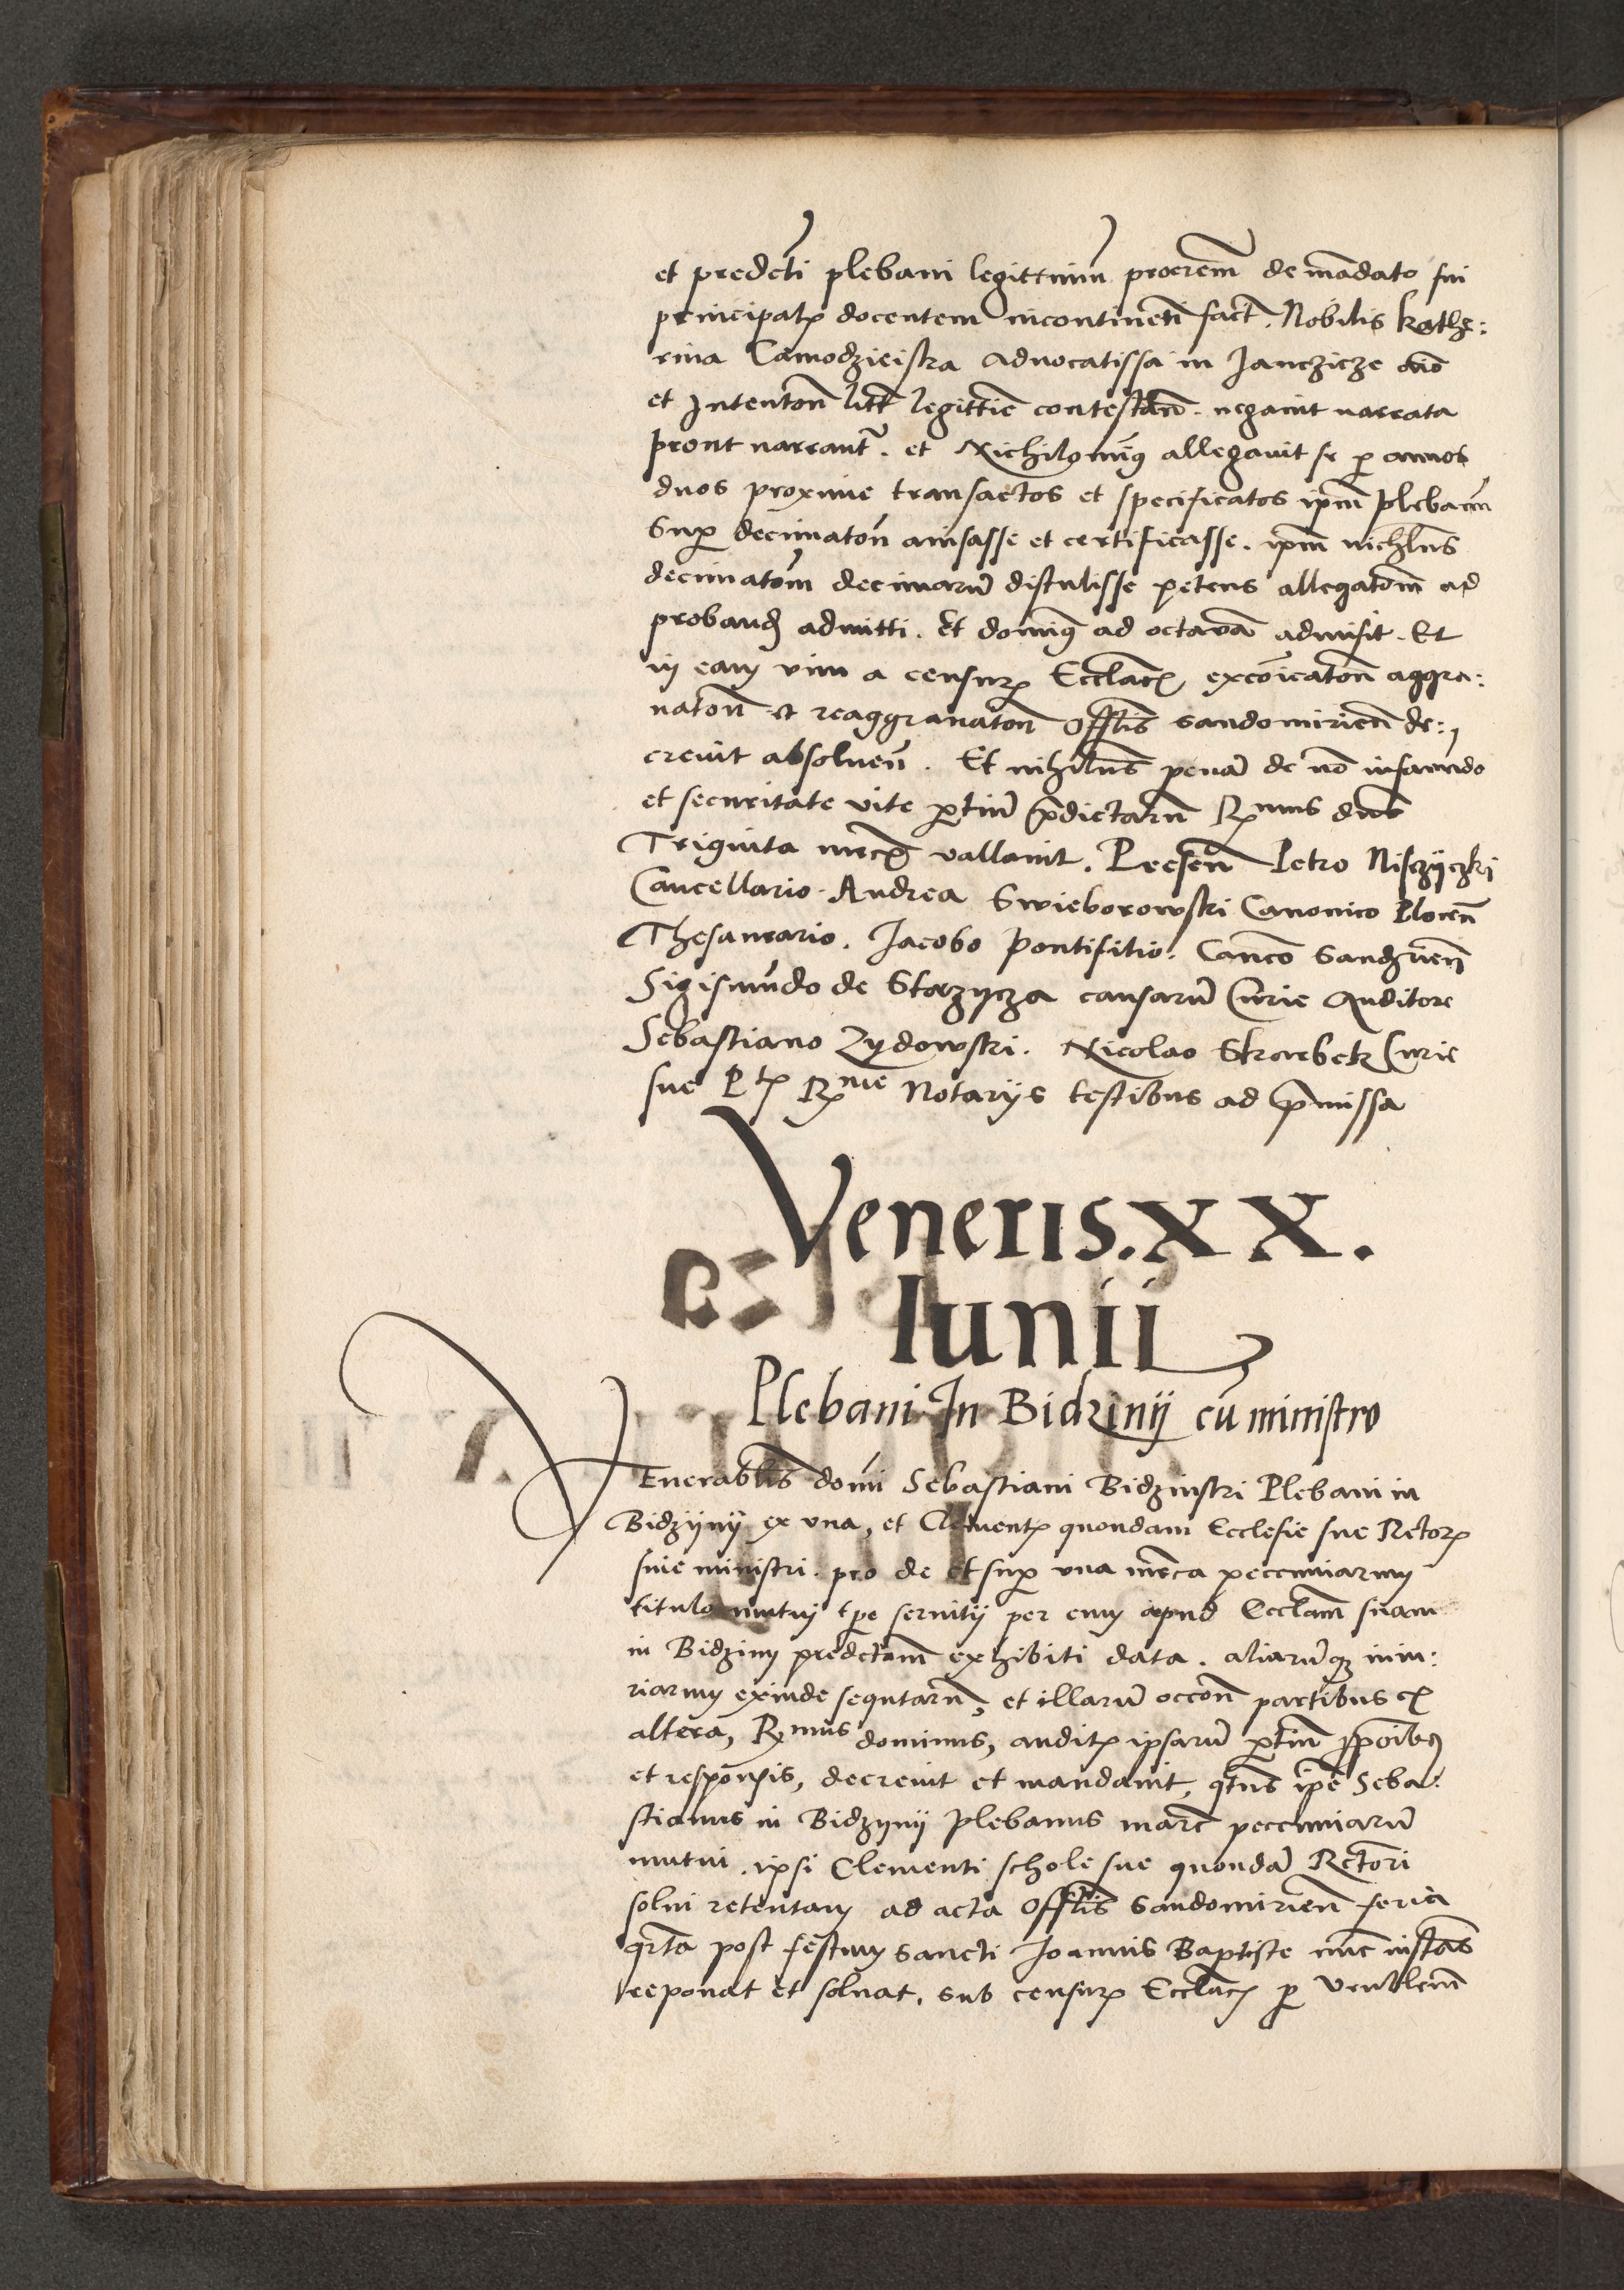 et predcti plebani legittimu procrem de madato sui
principalis docentem incontinenti fact. Nobilis Kathe:
rina Camodzieiska Advocatissa in Janczicze
et Intenton litt legittime contestan. negavit narrata
prout narrant. et Nichilominus allegavit se p annos
duos proxime transactos et specificatos ipm plebanu
Sup decimaton avisasse et certificasse. ipm nichlus
decimatom decimaru distulisse petens allegatom ad
proband admitti. Et dominus ad octava admisit. Et
in eam vim a censuris Ecclacis excoicaton aggra:
vaton et reaggravaton Offlis Sandomirien de:
crevit absolven. Et nihilus pena de no infamdo
et securitate vite ptiu pdictaru Rmus dns
Triginta mrcis vallavit. Presen Petro Nisczyczki
Cancellario. Andrea Swieborowski Canonico Plocen
Thesaurario. Jacobo Pontifitio. Canco Sandrien
Sigismudo de Starzycza causaru Curie Auditore
Sebastiano Zydowski. Nicolao Skarbek Curie
sue Ptis Rme Notarijs testibus ad pmissa
Veneris. XX.
Iunii
Plebani In Bidzinij cu ministro
Venerablis domi Sebastiani Bidzinski Plebani in
Bidzijnij ex una, et Clementis quondam Ecclesie sue Rectoris
sive ministri. pro de et sup una mrca peccuniarum
titulo mutuj tpe servitij per eum apud Ecclam suam
in Bidzinij predctam exhibiti data. aliaruq iniu:
riarum exinde sequtaru, et illaru occon partibus ex
altera, Rmus dominus, auditis ipsaru ptiu ppoibus
et responsis, decrevit et mandavit, qtus ipe Seba:
stianus in Bidzynij Plebanus marc peccuniaru
mutui. ipsi Clementi schole sue quonda Rectori
solvi retentam ad acta Offlis Sandomirien feria
qrta post festum sancti Joannis Baptiste nuc instas
reponat et solvat. sub censuris Ecclacis p Venblem